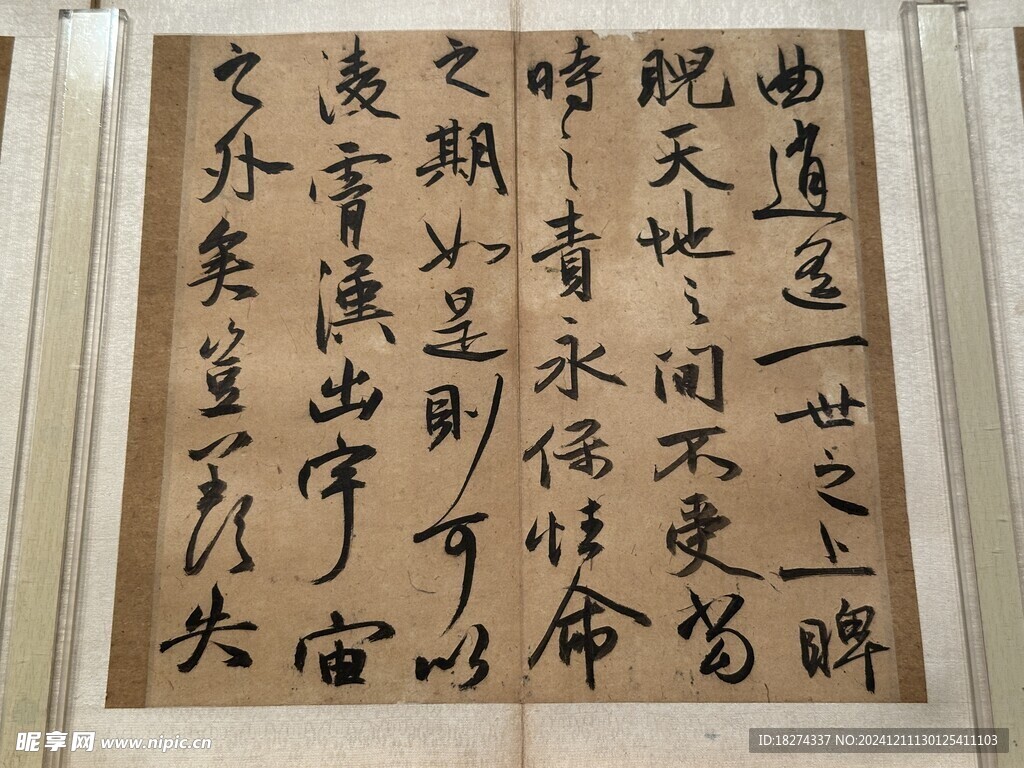 曲逍遥一世之上睥
睨天地之間不受當
時之責永保性命
之期如是則可以
淩霄漢出宇宙
之外矣豈羨夫
昵享网 www.nipic.cn
ID:18274337 NO:20241211130125411103